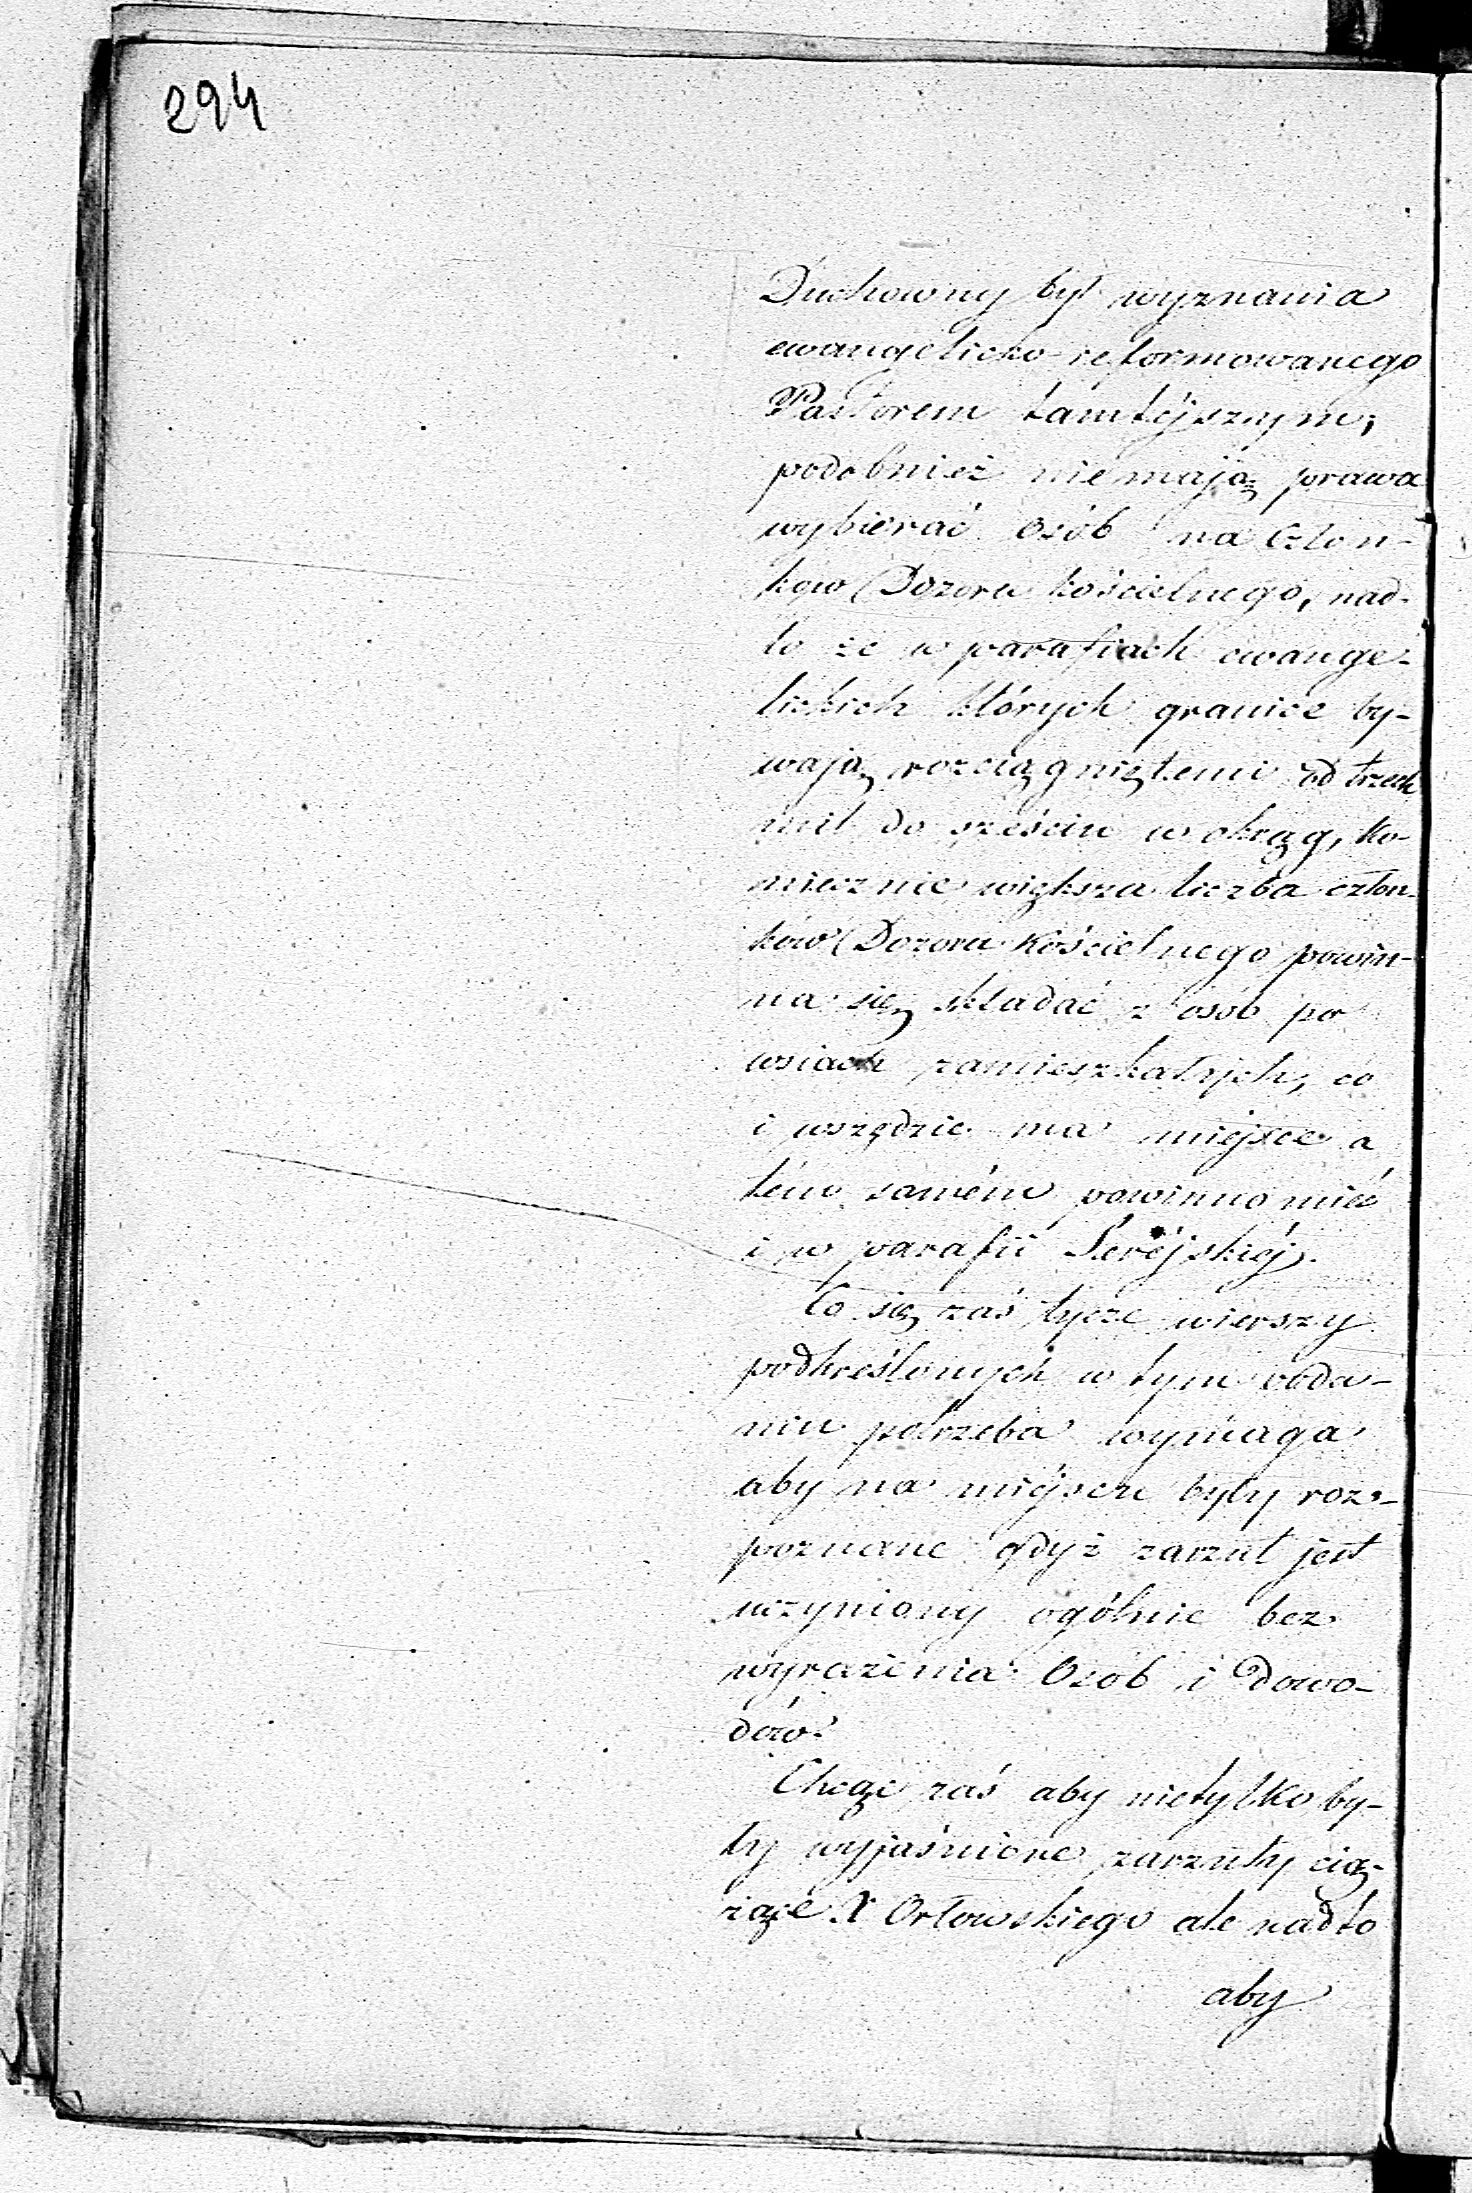 294
Duchowny był wyznania
ewangelicko-reformowanego
Pastorem tamtéjszym,
podobnież niemają prawa
wybierać osób na Człon-
ków Dozoru kościelnego, nad-
to że w parafiach ewange-
lickich których granice by-
wają rozciągniętemi od trzech
mil do sześciu w okrąg, ko-
niecznie większa liczba człon-
ków Dozoru Kościelnego powin-
na się składać z osób po
wsiach zamieszkałych, co
i wszędzie ma miejsce a
tém samém powinno mieć
i w parafii Seréjskiéj.
Co się zaś tycze wierszy
podkreślonych w tym poda-
niu potrzeba wymaga
aby na miéjscu były roz-
poznane gdyż zarzut jest
uczyniony ogólnie bez
wyrażenia Osób i dowo-
dów.
Chcąc zaś aby nietylko by-
ły wyjaśnione zarzuty cią-
żące X Orłowskiego ale nadto
aby